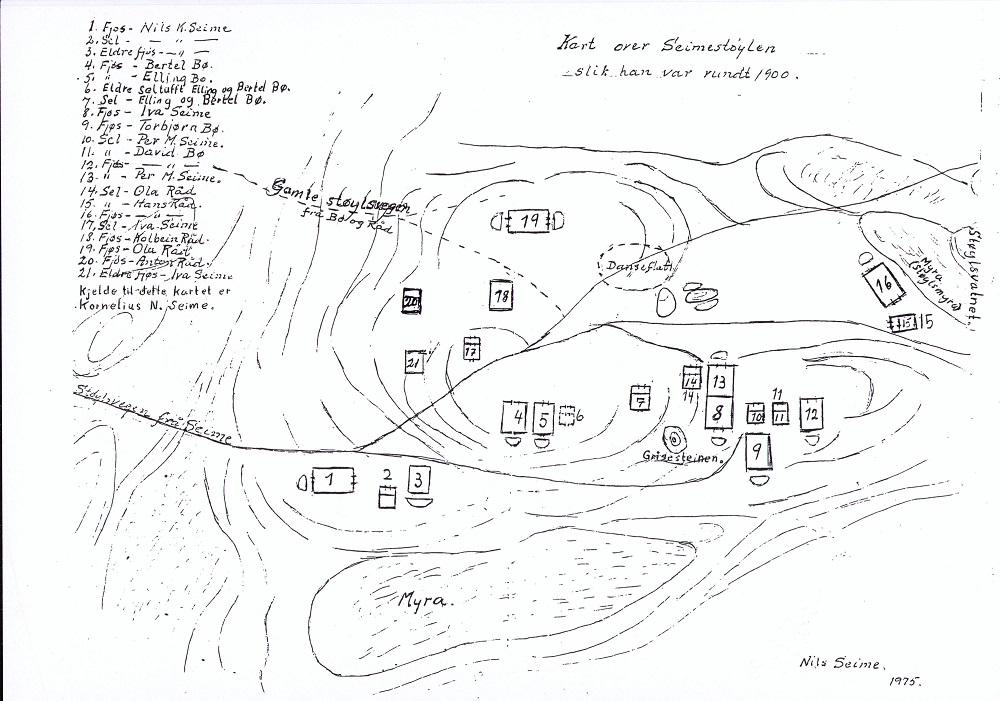 1. Fjøs- Nils K. Seime
2. Sel - — " —
3. Eldre fjøs - — " —
4. Fjøs - Bertel Bø.
5. " - Elling Bø.
6. Eldre seltufft Elling og Bertel Bø.
7. Sel - Elling og Bertel Bø.
8. Fjøs - Iva Seime
9. Fjøs - Torbjørn Bø.
10. Sel - Per M. Seime.
11. " - David Bø
12. Fjøs - — " —
13. " - Per M. Seime.
14. Sel - Ola Råd
15. " - Hans Råd.
16. Fjøs - — " —
17. Sel - Iva Seime
18. Fjøs - Kolbein Råd.
19. Fjøs - Ola Råd
20. Fjøs - Anton Råd.
21. Eldre fjøs - Iva Seime
Kjelde til dette kartet er
Kornelius N. Seime.
Kart over Seimestøylen
slik han var rundt 1900.
Gamle støylsvegen
frå Bø og Råd
19
Danseflati
Støylsvatnet.
Myra
(Støylsmyra)
16
15 15
20
18
21
17
14
14
13
7
8
10
11
11
12
4
5
6
9
Grisesteinen.
Støylsvegen frå Seime
1
2
3
Myra.
Nils Seime.
1975.